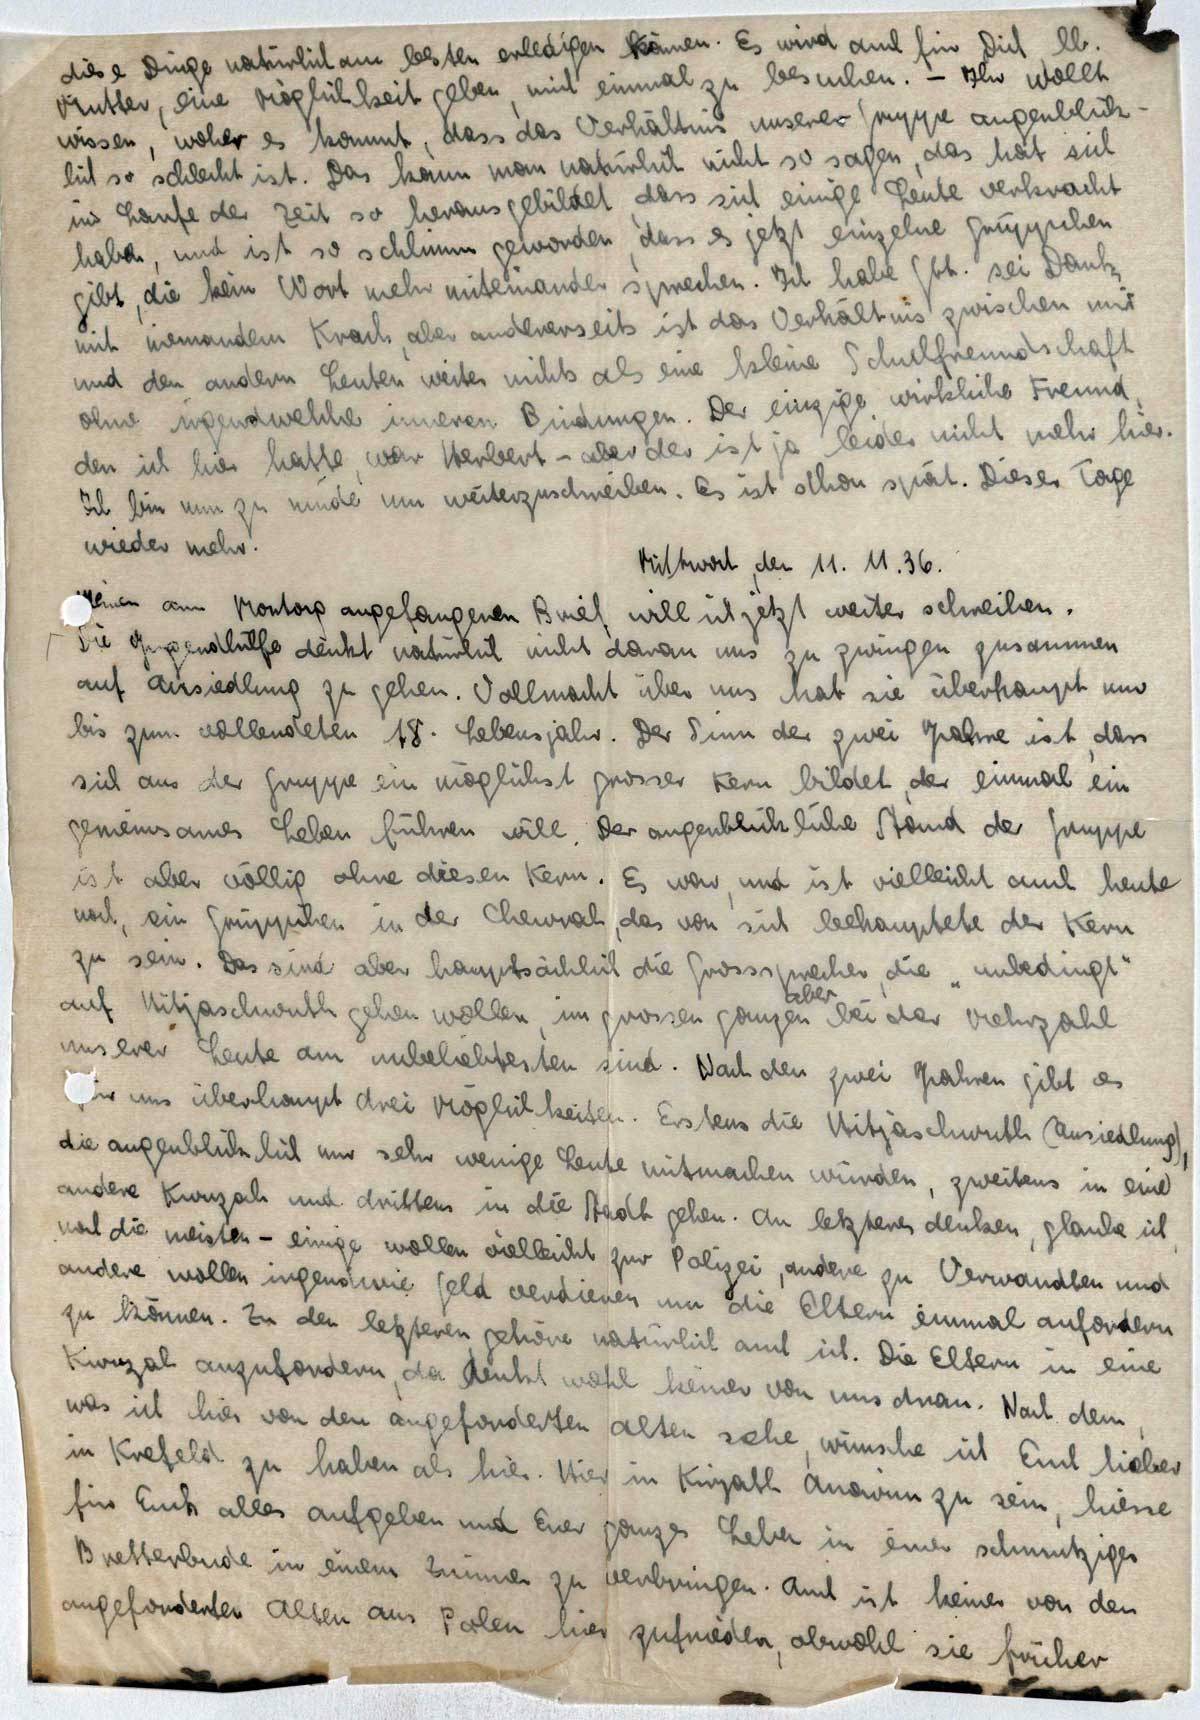 diese Dinge natürlich am besten erledigen können. Es wird auch für Dich lb.
Mutter, eine Möglichkeit geben, mich einmal zu besuchen. – Ihr wollt
wissen, woher es kommt, dass das Verhältnis unserer Gruppe augenblick-
lich so schlecht ist. Das kann man natürlich nicht so sagen, das hat sich
im Laufe der Zeit so herausgebildet, dass sich einige Leute verkracht
haben, und ist so schlimm geworden, dass es jetzt einzelne Grüppchen
gibt, die kein Wort mehr miteinander sprechen. Ich habe Gtt. sei Dank,
mit niemandem Krach, aber andererseits ist das Verhältnis zwischen mir
und den andern Leuten weiter nichts als eine kleine Schulfreundschaft
ohne irgendwelche inneren Bindungen. Der einzige wirkliche Freund,
den ich hier hatte, war Herbert – aber der ist ja leider nicht mehr hier.
Ich bin nun zu müde um weiterzuschreiben. Es ist schon spät. Dieser Tage
wieder mehr.
Mittwoch, den 11. 11. 36.
Meinen am Montag angefangenen Brief will ich jetzt weiter schreiben.
Die Jugendhilfe denkt natürlich nicht daran uns zu zwingen zusammen
auf Ansiedlung zu gehen. Vollmacht über uns hat sie überhaupt nur
bis zum vollendeten 18. Lebensjahr. Der Sinn der zwei Jahre ist, dass
sich aus der Gruppe ein möglichst grosser Kern bildet, der einmal ein
gemeinsames Leben führen will. Der augenblickliche Stand der Gruppe
ist aber völlig ohne diesen Kern. Es war, und ist vielleicht auch heute
noch, ein Grüppchen in der Chewrah, das von sich behauptete der Kern
zu sein. Das sind aber hauptsächlich die Grosssprecher, die „unbedingt"
auf Hitjaschwuth gehen wollen, im grossen ganzen aber bei der Mehrzahl
unserer Leute am unbeliebtesten sind. Nach den zwei Jahren gibt es
für uns überhaupt drei Möglichkeiten. Erstens die Hitjaschwuth (Ansiedlung),
die augenblicklich nur sehr wenige Leute mitmachen würden, zweitens in eine
andere Kwuzah und drittens in die Stadt gehen. An letzteres denken, glaube ich,
noch die meisten – einige wollen vielleicht zur Polizei, andere zu Verwandten und
andere wollen irgendwie Geld verdienen um die Eltern einmal anfordern
zu können. Zu den letzteren gehöre natürlich auch ich. Die Eltern in eine
Kwuzah anzufordern, da denkt wohl keiner von uns dran. Nach dem,
was ich hier von den angeforderten Alten sehe, wünsche ich Euch lieber
in Krefeld zu haben als hier. Hier in Kirjath Anawim zu sein, hiesse
für Euch alles aufgeben und Euer ganzes Leben in einer schmutzigen
Bretterbude in einem Zimmer zu verbringen. Auch ist keiner von den
angeforderten Alten aus Polen hier zufrieden, obwohl sie früher